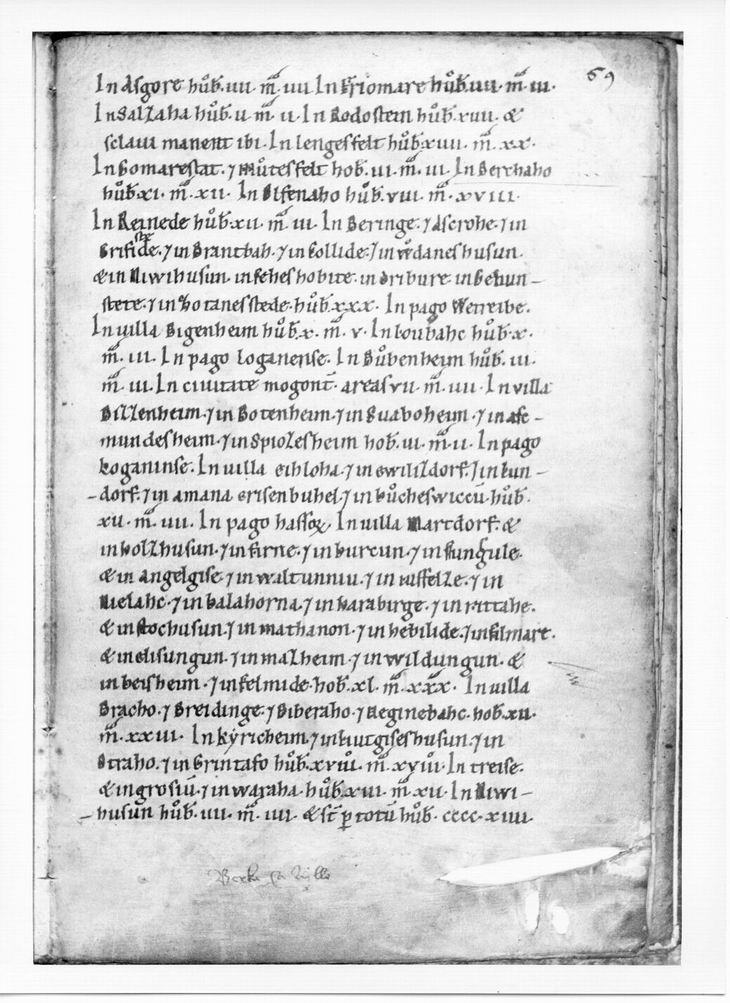 59
In Asgore hůb. uii. m̄. uii. In Friomare hůb. uii. m̄. iii.
In Salzaha hůb. u. m̄. ii. In Rodostein hůb. xuii. &
sclaui manent ibi. In lengesfelt hůb. xuiii. m̄. xx.
In Gomarestat. ⁊ Můtesfelt hob. ui. m̄. iii. In Berchaho
hůb. xi. m̄. xii. In Elfenaho hůb. uiii. m̄. xuiii.
In Reinede hůb. xii. m̄. iii. In Beringe. ⁊ Ascrohe. ⁊ in
Grifide. ⁊ in Brantbah. ⁊ in Collide. ⁊ in wdaneshusun.
& in Niwihusun. in feheshobite. in dribure in Gebun-
stete. ⁊ in hotanesstede. hůb. xxx. In pago Wetreibe.
In uilla Bigenheim hůb. x. m̄. v. In loubahc hůb. x.
m̄. iii. In pago Loganense. In Bůbenheym hůb. iii.
m̄. iii. In ciuitate mogont. areas uii. m̄. iiii. In villa
Bizzenheim. ⁊ in Botenheim. ⁊ in Suaboheim. ⁊ in asc-
mundesheim. ⁊ in Spiozesheim hob. ui. m̄. ii. In pago
Loganinse. In uilla eihloha. ⁊ in swilizdorf. ⁊ in lun-
-dorf. ⁊ in amana erisenbuhel. ⁊ in bůcheswiccū. hůb.
xii. m̄. uii. In pago hassoꝝ. In uilla Martdorf. &
in holzhusun. ⁊ in firne. ⁊ in burcun. ⁊ in fungule.
& in angelgise. ⁊ in waltunniu. ⁊ in uffelze. ⁊ in
Nielahc. ⁊ in balahorna. ⁊ in harabirge. ⁊ in rittahe.
& in stochusun. ⁊ in mathanon. ⁊ in hebilide. ⁊ in filmare.
& in elisungun. ⁊ in malheim. ⁊ in wildungun. &
in beisheim. ⁊ in felmide. hob. xl. m̄. xxx. In uilla
Bracho. ⁊ Breidinge. ⁊ Biberaho. ⁊ Reginebahc. hob. xii.
m̄. xxiii. In kyricheim. ⁊ in liutgiseshusun. ⁊ in
Otraho. ⁊ in Grintafo hůb. xuiii. m̄. xuiii. In treise.
& in grosiū. ⁊ in waraha. hůb. xui. m̄. xii. In Niwi-
-husun hůb. uii. m̄. iiii. & st̄ ꝑ totū hůb. cccc. xiiii.